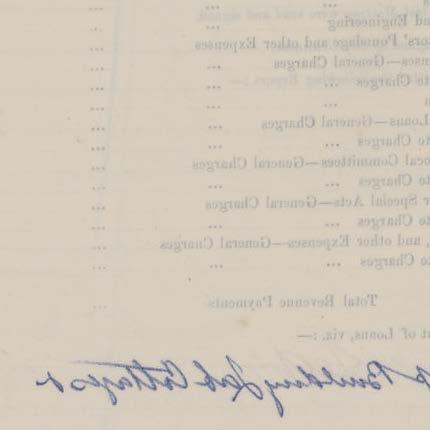 nd Engineering ... ...
tors' Poundage and other Expenses ...
nses—General Charges ... ...
te Charges ... ... ...
n ... ... ...
Loans—General Charges ... ...
te Charges ... ...
ocal Committees—General Charges ...
te Charges ... ... ...
r Special Acts—General Charges ...
te Charges ... ... ...
, and other Expenses—General Charges ...
te Charges ... ... ...
Total Revenue Payments ...
t of Loans, viz. :—
Building Lab Cottages &